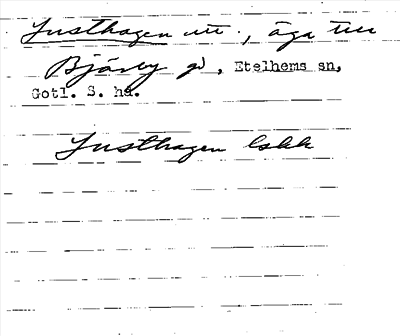 Lusthagen utt, äga till
Bjärby gd, Etelhems sn,
Gotl. S. hd.
Lusthagen lskk